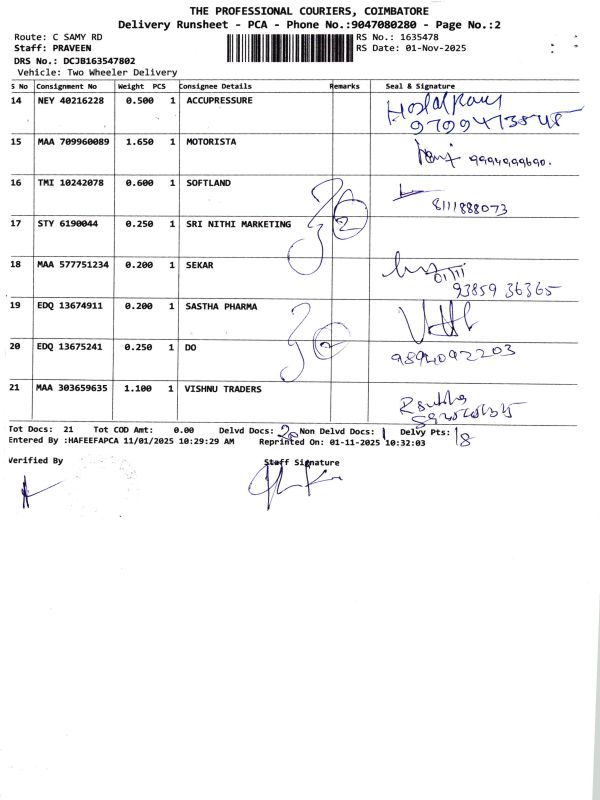 THE PROFESSIONAL COURIERS, COIMBATORE
Delivery Runsheet - PCA - Phone No.:9047080280 - Page No.:2
Route: C SAMY RD
RS No.: 1635478
Staff: PRAVEEN
RS Date: 01-Nov-2025
DRS No.: DCJB163547802
Vehicle: Two Wheeler Delivery
S No Consignment No Weight PCS Consignee Details Remarks Seal & Signature
14 NEY 40216228 0.500 1 ACCUPRESSURE
15 MAA 709960089 1.650 1 MOTORISTA
9994999690.
16 TMI 10242078 0.600 1 SOFTLAND
8111888073
17 STY 6190044 0.250 1 SRI NITHI MARKETING 2
18 MAA 577751234 0.200 1 SEKAR
01/11
93859 36365
19 EDQ 13674911 0.200 1 SASTHA PHARMA
20 EDQ 13675241 0.250 1 DO 2
9894092203
21 MAA 303659635 1.100 1 VISHNU TRADERS
Tot Docs: 21 Tot COD Amt: 0.00 Delvd Docs: 20 Non Delvd Docs: 1 Delvy Pts: 18
Entered By :HAFEEFAPCA 11/01/2025 10:29:29 AM Reprinted On: 01-11-2025 10:32:03
Verified By
Staff Signature